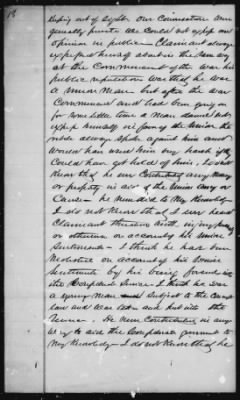 18
out of Eight. Our Connections were
generally private We Could not express our
opinion in public — Claimant always
expressed himself about in the same way
at the Commencement of the war his
public reputation was that he was
a Union Man but after the war
Commenced and had been going on
for some little time a man dared not
express himself in favor of the Union. The
rebels always spoke against him and
would have
Could have got hold of him. I don't
Know that he ever Contributed any money
or property in aid of the Union Army or
Cause — he never did to My Knowledge
I do not Know that I ever heard
Claimant threatened with
or otherwise on account of his Union
Sentiments — I think he has been
Molested on account of his Union
Sentiments by his being forced in
the Confederate Service — I think he was
a young man and Subject to the Conscript
law and was taken and put into the
Service. He never Contributed in any
way to aid the Confederate government to
My Knowledge — I do not Know that he